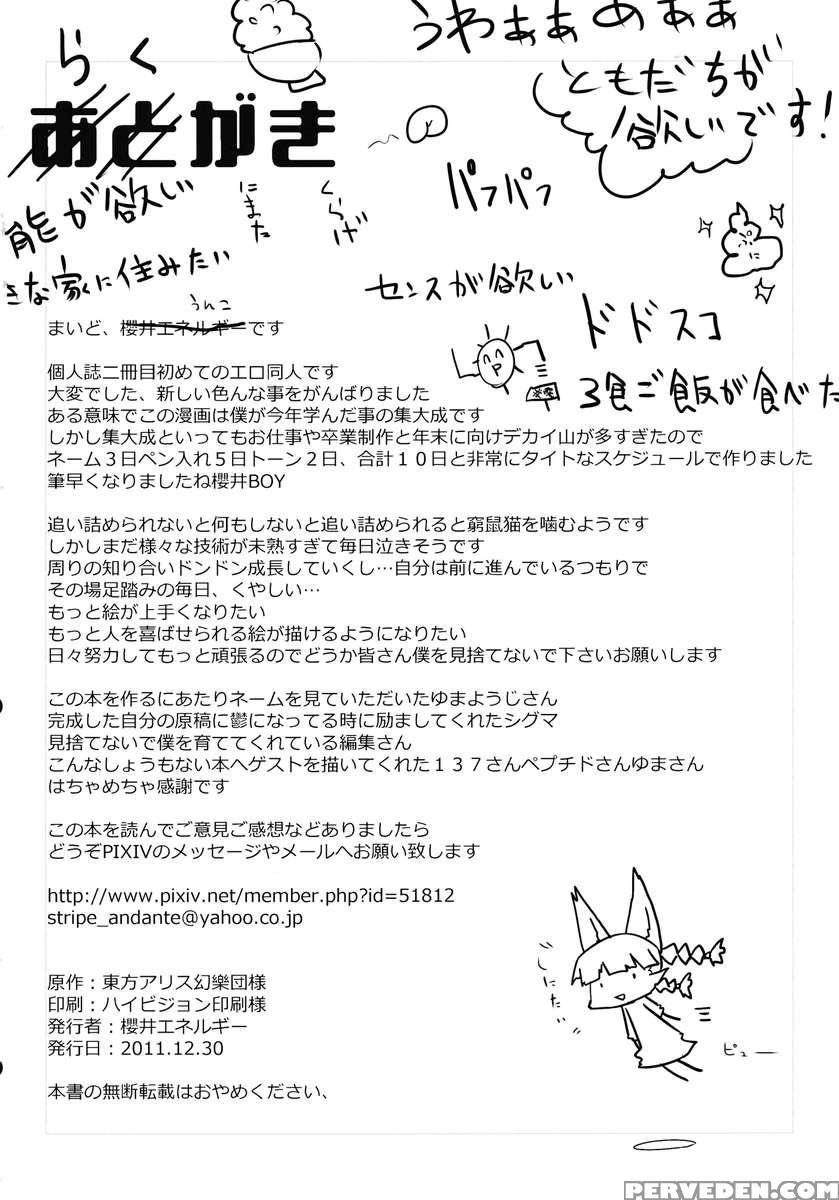 うわぁぁめぁぁ
らく
ともだちが
欲しいです！
あとがき
パフパフ
能が欲しい
にまた
くらげ
きな家に住みたい
センスが欲しい
うんこ
ドドスコ
まいど、櫻井エネルギーです
3食ご飯が食べた
個人誌二冊目初めてのエロ同人です
大変でした、新しい色んな事をがんばりました
ある意味でこの漫画は僕が今年学んだ事の集大成です
しかし集大成といってもお仕事や卒業制作と年末に向けデカイ山が多すぎたので
ネーム３日ペン入れ５日トーン２日、合計１０日と非常にタイトなスケジュールで作りました
筆早くなりましたね櫻井BOY
追い詰められないと何もしないと追い詰められると窮鼠猫を噛むようです
しかしまだ様々な技術が未熟すぎて毎日泣きそうです
周りの知り合いドンドン成長していくし…自分は前に進んでいるつもりで
その場足踏みの毎日、くやしい…
もっと絵が上手くなりたい
もっと人を喜ばせられる絵が描けるようになりたい
日々努力してもっと頑張るのでどうか皆さん僕を見捨てないで下さいお願いします
この本を作るにあたりネームを見ていただいたゆまようじさん
完成した自分の原稿に鬱になってる時に励ましてくれたシグマ
見捨てないで僕を育ててくれている編集さん
こんなしょうもない本へゲストを描いてくれた１３７さんペプチドさんゆまさん
はちゃめちゃ感謝です
この本を読んでご意見ご感想などありましたら
どうぞPIXIVのメッセージやメールへお願い致します
http://www.pixiv.net/member.php?id=51812
stripe_andante@yahoo.co.jp
じにたい
原作：東方アリス幻樂団様
印刷：ハイビジョン印刷様
発行者：櫻井エネルギー
発行日：2011.12.30
ピュー
本書の無断転載はおやめください、
PERVEDEN.COM